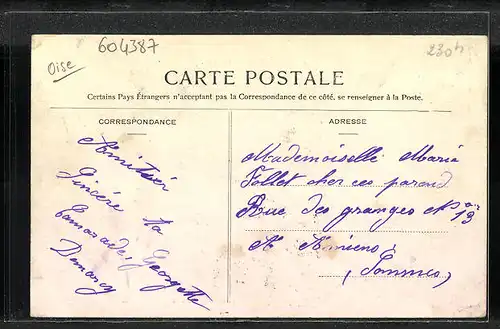 604387
Oise
230h
CARTE POSTALE
Certains Pays Étrangers n'acceptant pas la Correspondance de ce côté, se renseigner à la Poste.
CORRESPONDANCE
Amitiér
Sincére ta
Camarade,
Georgette
ADRESSE
Mademoiselle Maria
Follet cher ces parend
Rue des granges No 13
A Amiens
(Sommes)